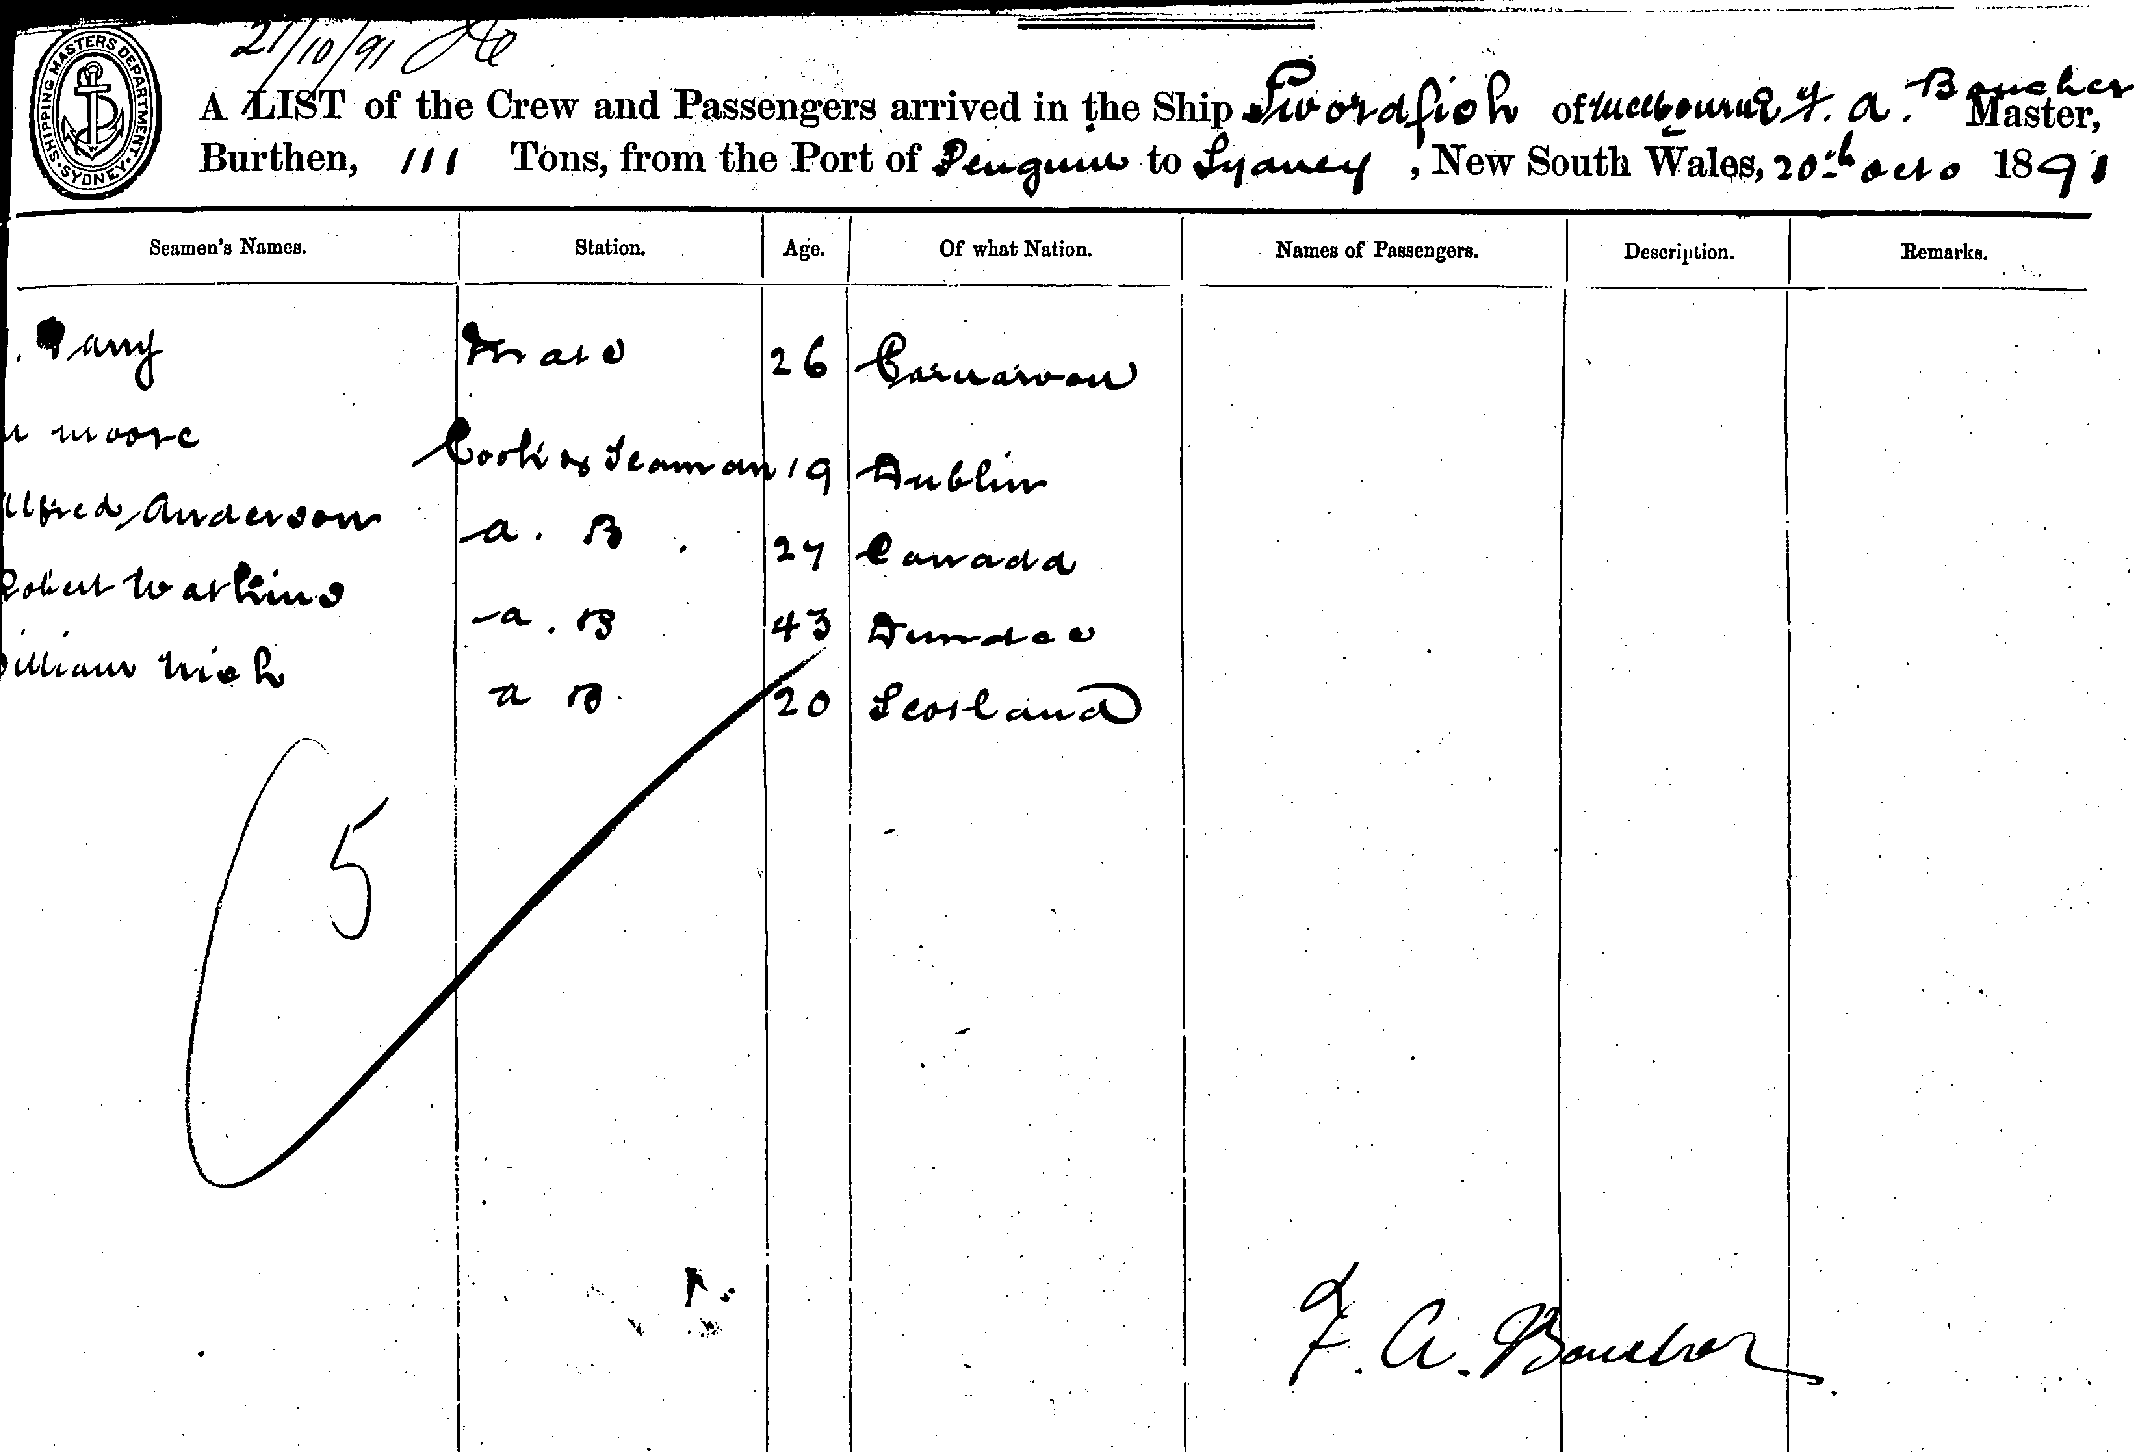 21/10/91
SHIPPING MASTERS DEPARTMENT. SYDNEY.
A LIST of the Crew and Passengers arrived in the Ship Swordfish of Melbourne F. A. Boucher Master,
Burthen, 111 Tons, from the Port of Penguin to Sydney, New South Wales, 20th Octo 1891
Seamen's Names. Station. Age. Of what Nation. Names of Passengers. Description. Remarks.
Parry Mate 26 Carnarvon
Moore Cook & Seaman 19 Dublin
Alfred Anderson A. B. 27 Canada
Robert Watkins A. B 43 Dundee
William A B. 20 Scotland
5
F. A. Boucher